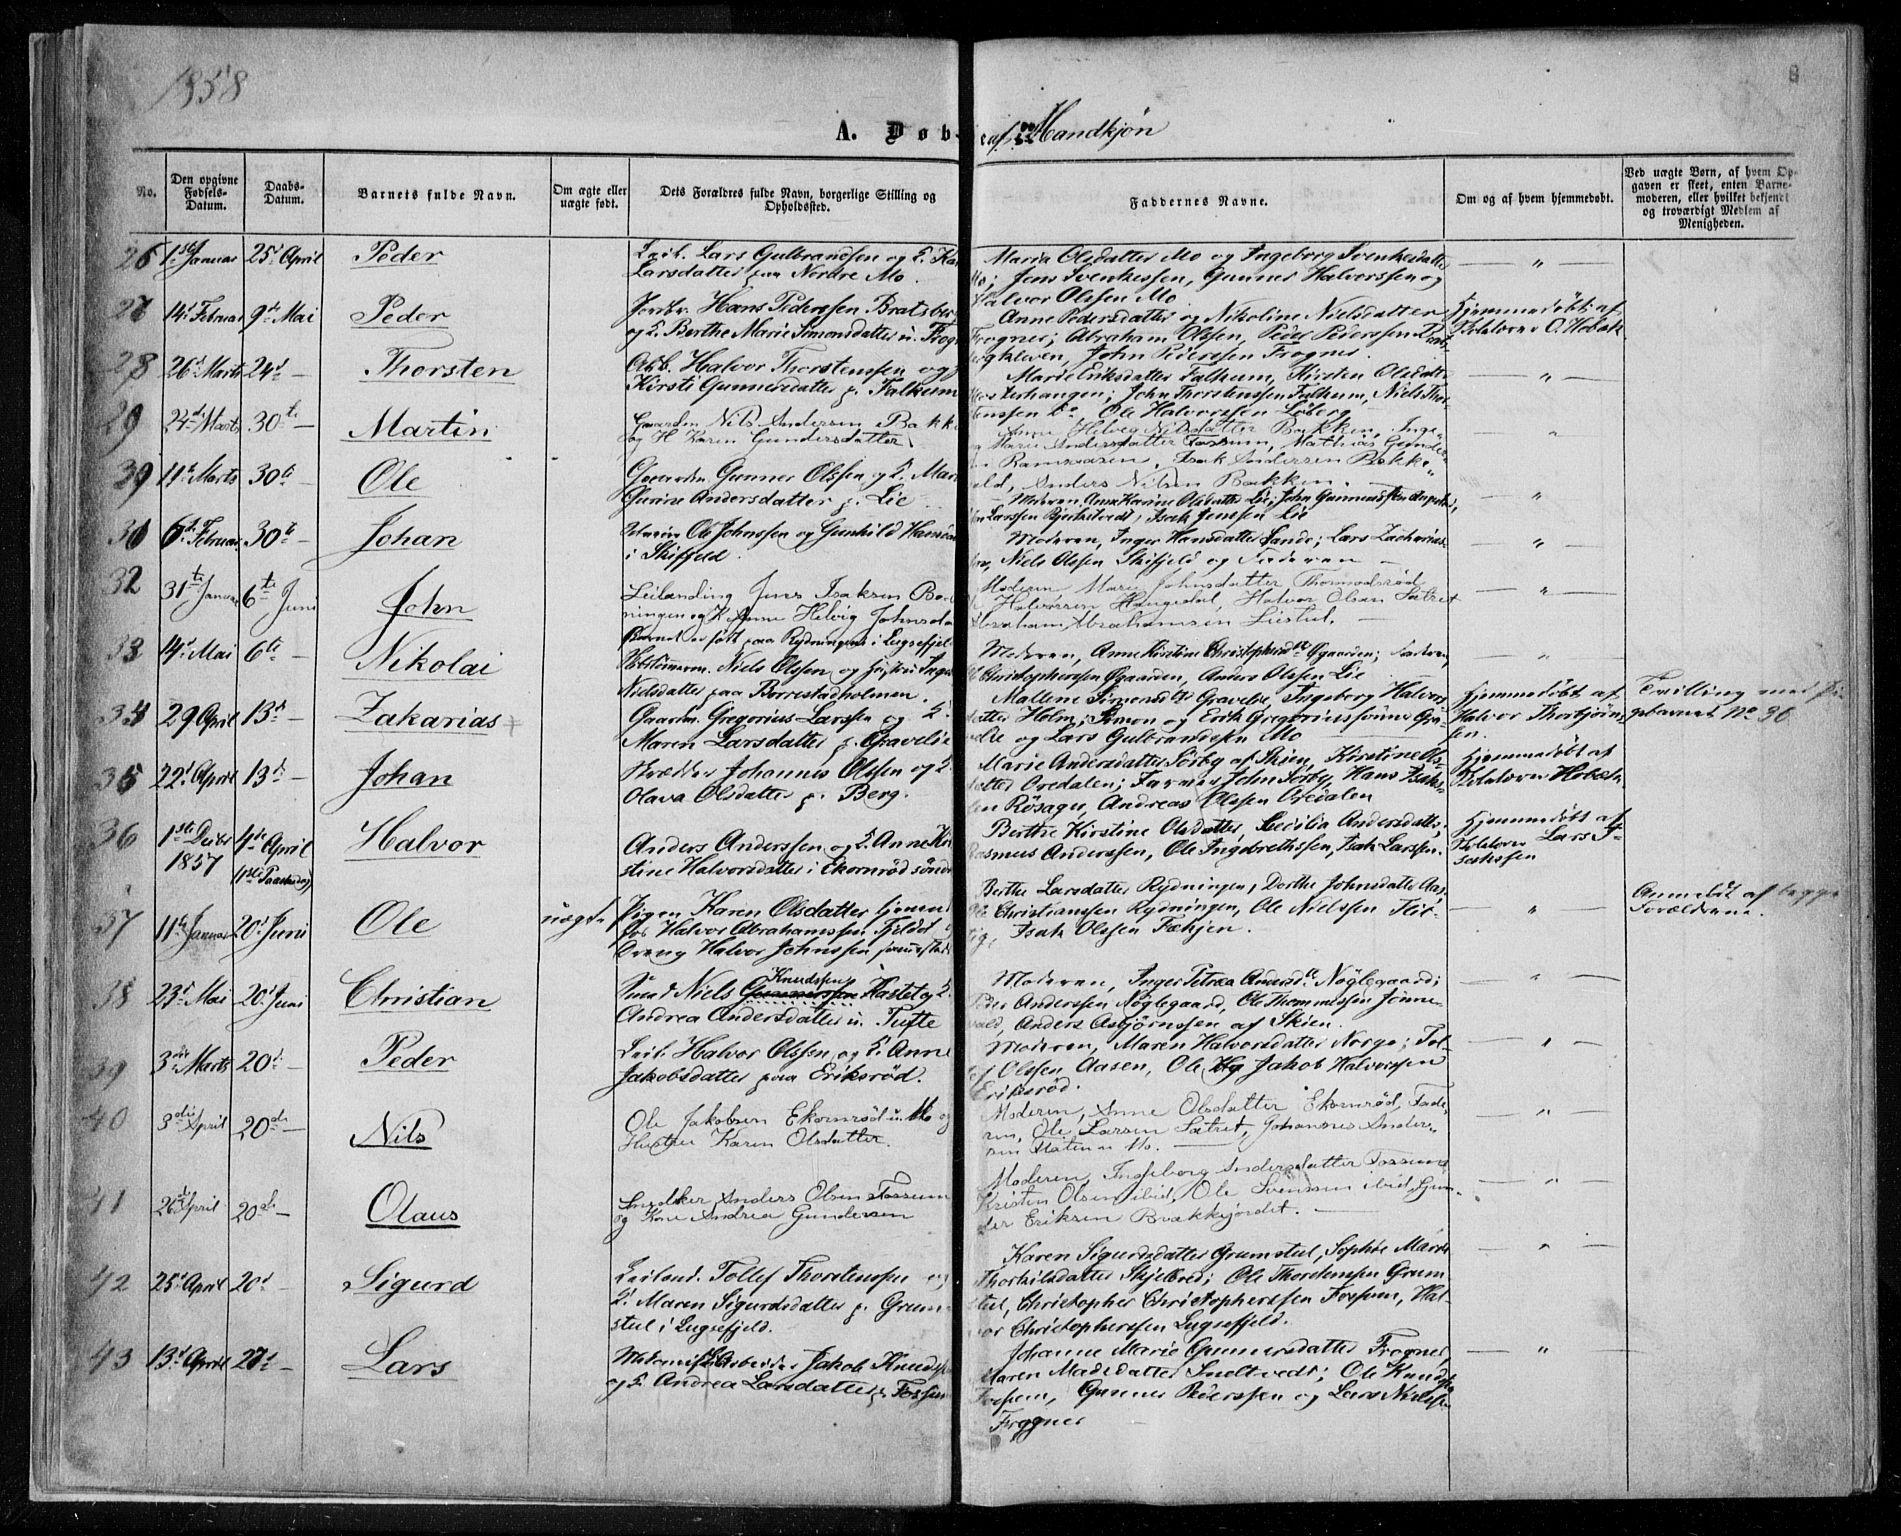 1858
8
A. Døb- af Mandkjøn
No.
Den opgivne Fødsels-Datum.
Daabs-Datum.
Barnets fulde Navn.
Om ægte eller uægte født.
Dets Forældres fulde Navn, borgerlige Stilling og Opholdssted.
Faddernes Navne.
Om og af hvem hjemmedøbt.
Ved uægte Børn, af hvem Opgaven er skeet, enten Barnemoderen, eller hvilket bekjendt og troværdigt Medlem af Menigheden.
26 1ste Januar 25d April Peder
Leil. Lars Gulbrandsen og
Larsdatter paa Nordre Mo
Maria Olsdatter Mo og Ingeborg Svenkesdatter
Mo; Jens Svenkessen, Gunner Halvorssen og
Halvor Olssen Mo
— " —
27 14d Februar 9de Mai Peder
Hans Pederssen Bratsber
og Berthe Marie Simonsdatter u. Frogn
Anne Pedersdatter og Nikoline Nielsdatter
Frogner; Abraham Olssen, Peder Pederssen Brats-
bergkleven, John Pederssen Frogner.
Hjemmedøbt af
Kirkelover O. Hobæk
28 26d Marts 24d — Thorsten
Arb. Halvor Thorstenssen og
Kirsti Gunnersdatter p. Falkum
Marie Eriksdatter Falkum, Kirsten Olsdatter
Østerhangen; John Thorstenssen Falkum, Niels Thor-
stenssen do, Ole Halvorssen Løberg
— " —
29 24de Marts 30te — Martin
Gaardm. Nils Andersen Bakk
og H Karen Gundersdatter
Anne Helvig Nilsdatter Bakken, Inge-
Marie Andersdatter Fossum, Mathias Gunder-
sen Ramsaasen, Isak Andersen Bakke-
, Anders Nilsen Bakken.
"
30 11te Marts 30te Ole
Gaardm. Gunner Olssen og
Gurine Andersdatter p. Lie
Moderen, Anne Karine Olsdatter Lie; John Gunnerssen
Larssen Bjerketvedt, Isak Jenssen Lie
— " —
31 6te Februar 30te — Johan
Ole Johnssen og Gunhild Hans
i Skiffeld
Moderen, Inger Hansdatter Sando; Lars Zacharias-
, Niels Olssen Skifjeld og Faderen
— " —
32 31te Januar 6te Juni John
Leilænding Jens Isaksen
ningen og K Anne Helvig Johnsda
Barnet er født paa Rydningen i Lugsefjel
Moderen Mari Johnsdatter Thormodsrød
Halvorsen Hangedal, Halvor Olsen Sætret
Abraham Abrahamsen Liestul. —
— " —
33 14d Mai 6te — Nikolai
Niels Olssen og Hustru Inge
Nielsdatter paa Borrestadholmen.
Moderen, Anne Kirstine Øgaarden; Faderen,
Christopherssen Øgaarden, Anders Olssen Lie
"
34 29 April 13d — Zakarias
Gaardm. Gregorius Larssen og
Maren Larsdatter p. Gravelie
Mallene Simonsdtr Gravelie, Ingeborg Halvors
datter Holm; Simon og Erik Gregoriussønner Gra-
velie og Lars Gulbrandssen Mo
Hjemmedøbt af
Halvor Thorbjørn-
sen.
Tvilling med Pi-
gebarnet No 36
35 22d April 13d — Johan
Skrædder Johannes Olssen og
Olava Olsdatter p. Berg.
Marie Andersdatter Sørby af Skien, Kirstine Ols
datter Oredalen; John Sørby, Hans Isaks-
sen Røsager, Andreas Olssen Oredalen
Hjemmedøbt af
Kirkelover Hobæk
36 1ste Decbr 1857 4de April (1ste Paaskedag) Halvor
Anders Anderssen og Anne Kir
stine Halvorsdatter i Ekornrød søndr
Berthe Kirstine Olsdatter, Secilia Andersdatter;
Rasmus Anderssen, Ole Ingebrethssen, Isak Larssen.
Hjemmedøbt af
Lars I-
sakssen
37 11te Januar 20d Juni Ole uægte
Pigen Karen Olsdatter tjenen
hos Halvor Abrahamssen Fjeldet
Dreng Halvor Johnssen sammesteds
Berthe Larsdatter Rydningen, Dorthe Johnsdatter Aas
Ole Christianssen Rydningen, Ole Nielssen Flit-
tig, Isak Olssen Fækjen.
— " —
Anmeldt af begge
Forældrene.
38 23d Mai 20d Juni Christian
Smed Niels Knudssen Kastet og
Andrea Andersdatter u. Tufte
Moderen, Inger Petrea Andersdtr Nøglegaard;
Peder Anderssen Nøglegaard, Ole Thommessen Jønne-
vald, Anders Asbjørnssen af Skien.
— " —
39 3die Marts 20d — Peder
Leil. Halvor Olssen og Anne
Jakobsdatter paa Eriksrød.
Moderen, Maren Halvorsdatter Norge; Tol-
lef Olssen Aasen, Ole og Jakob Halvorssen
Eriksrød.
— " —
40 3die April 20de — Nils
Ole Jakobsen Ekornrød u. Mo og
Hustru Karen Olsdatter.
Moderen, Anne Olsdatter Ekornrød, Fade-
ren, Ole Larsen Sætret, Johannes Ander-
sen Haten u Mo. —
— " —
41 26de April 20de — Olaus
Snedker Anders Olsen Fossum
og Kone Andrea Gundersen
Moderen, Ingeborg Andersdatter Fossum
Kristen Olsen ibid, Ole Svensen ibid, Gun-
der Eriksen Brækkejordet. —
— " —
42 25d April 20d — Sigurd
Leiland. Tollef Thorstenssen og
Maren Sigurdsdatter p. Grum-
stul i Lugsefjeld.
Karen Sigurdsdatter Grumstul, Sophie Marie
Thorkilsdatter Skjelbred; Ole Thorstenssen Grum-
stul, Christopher Christopherssen Fossum, Hal-
vor Christopherssen Lugsefjeld.
— " —
43 13d April 27d — Lars
Arbeider Jakob Knuds
og Andrea Larsdatter p. Fossum
Johanne Marie Gunnersdatter Frogner,
Maren Madsdatter Smeltvedt; Ole Knuds
Fossum, Gunner Pederssen og Lars Nielssen
Frogner
— " —